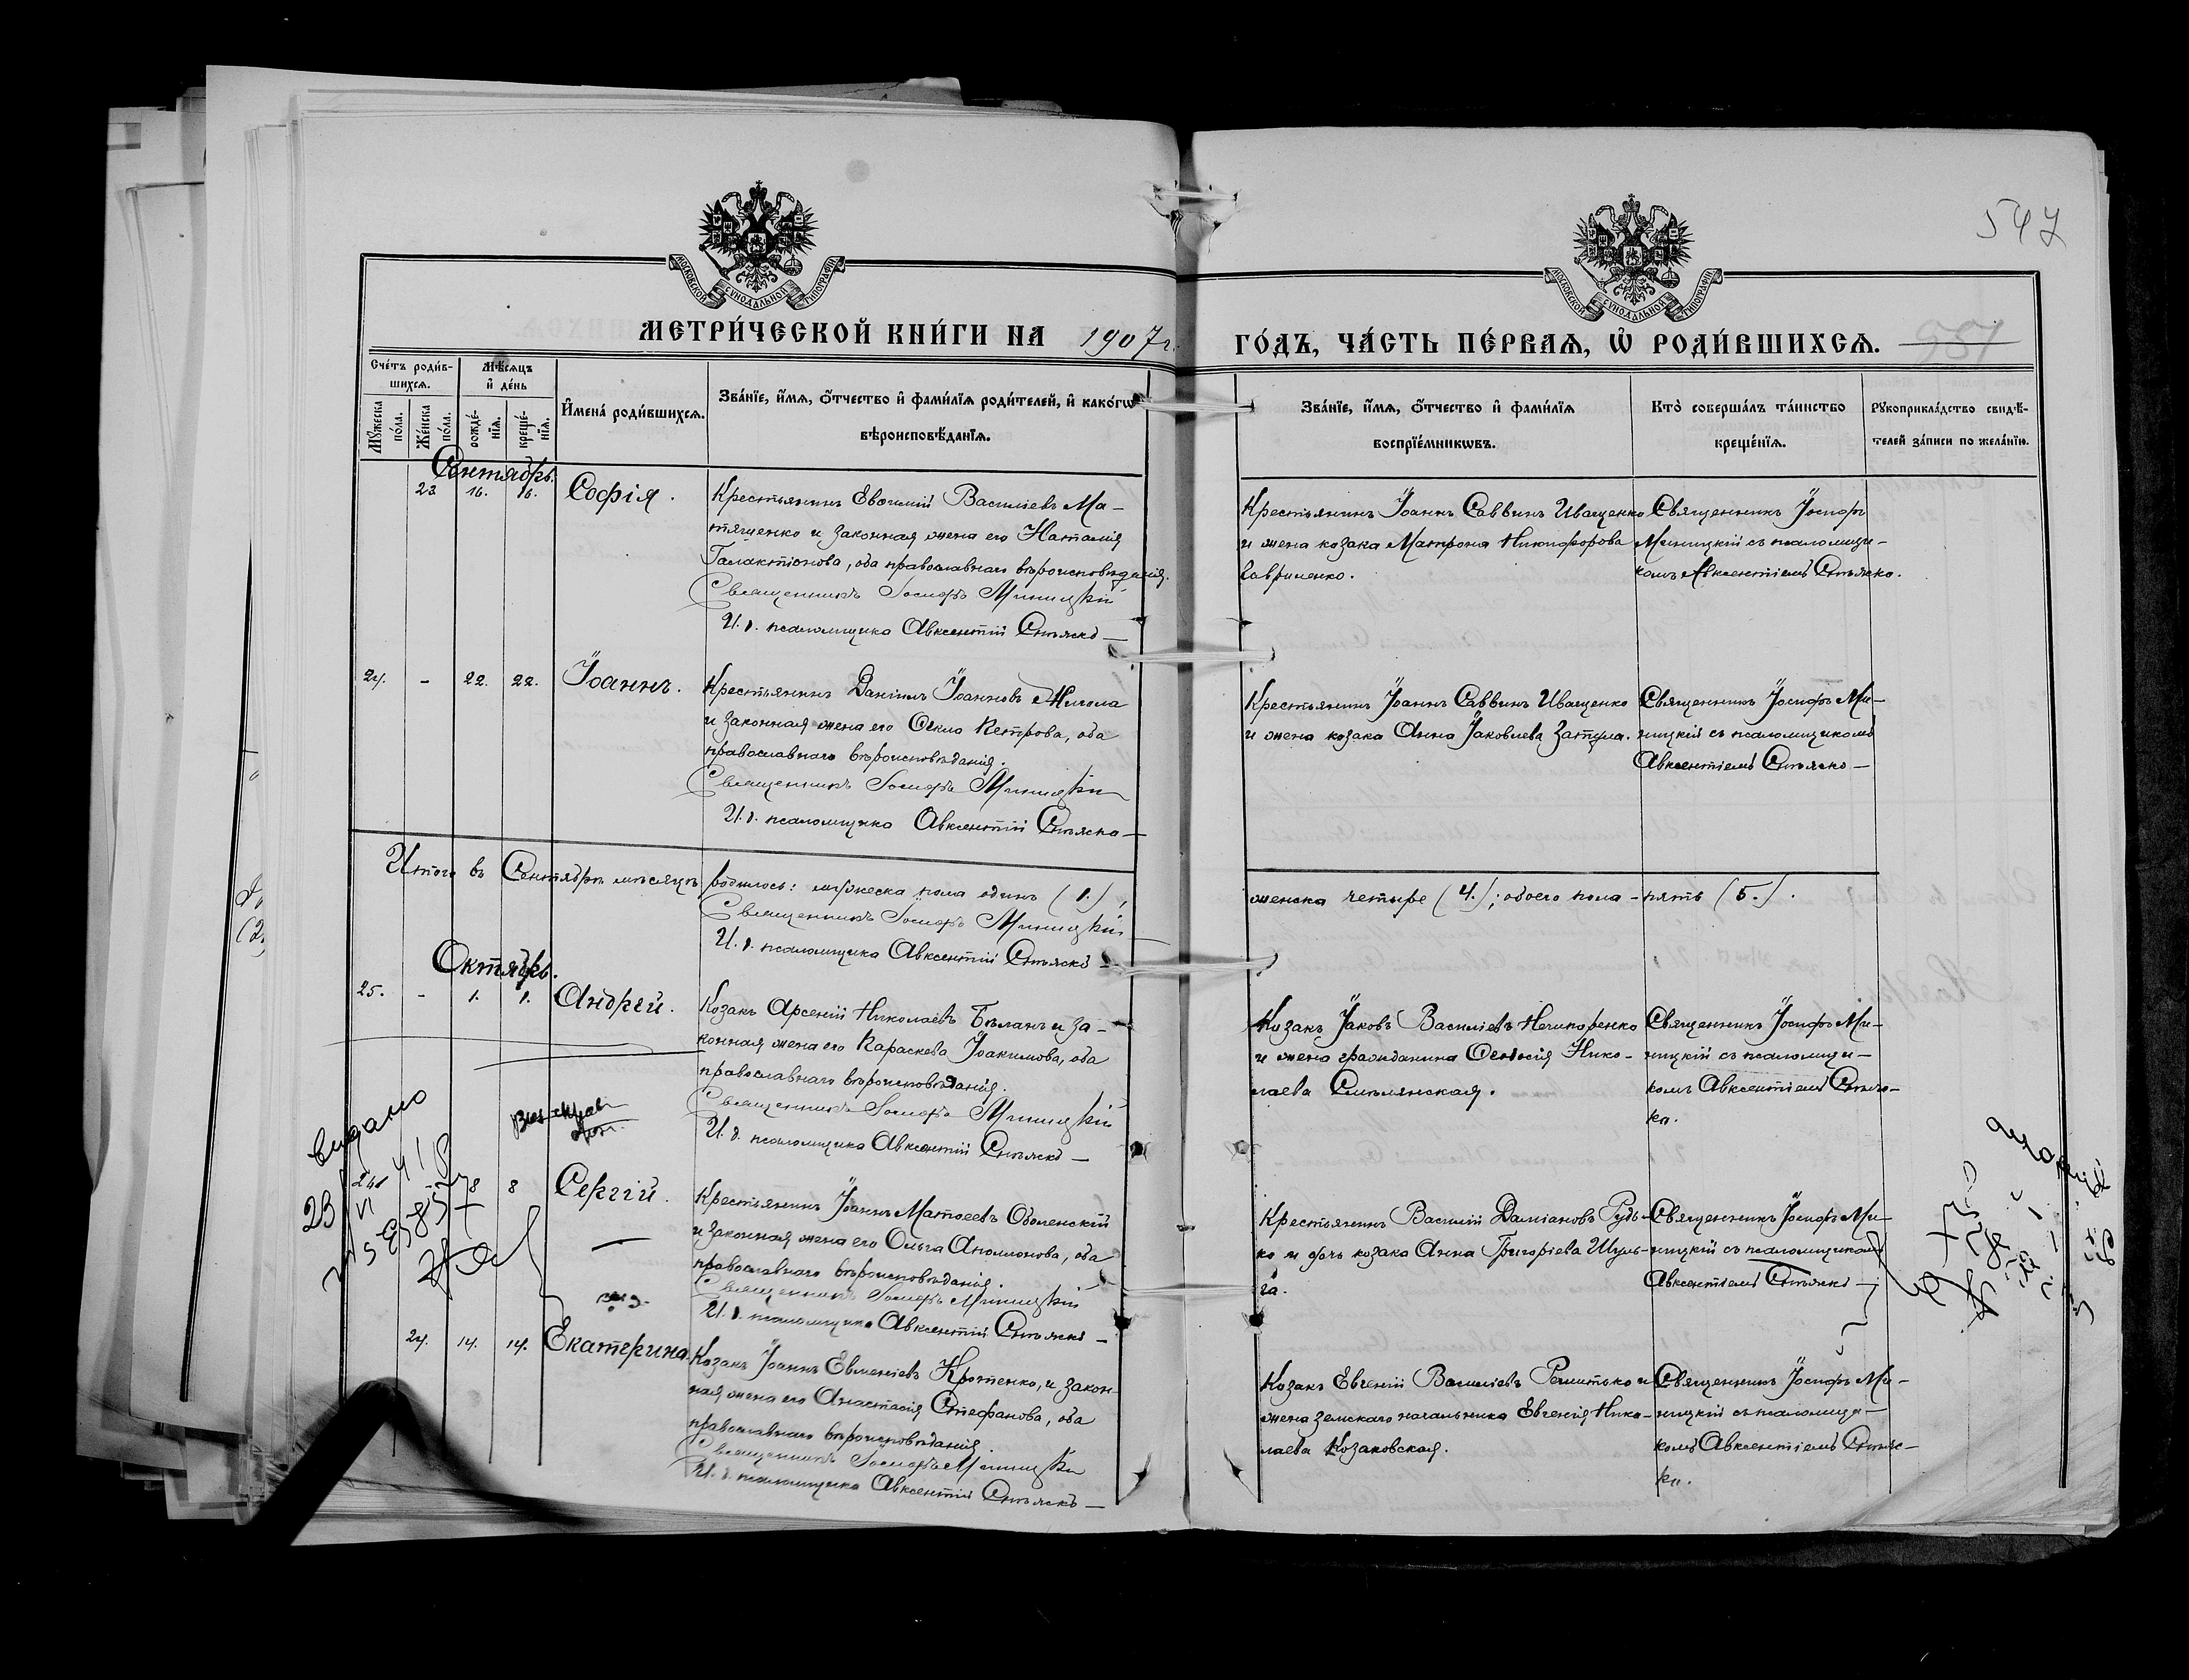 547
МОСКОВСКОЙ СУНОДАЛЬНОЙ ТИПОГРАФІИ
МОСКОВСКОЙ СУНОДАЛЬНОЙ ТИПОГРАФІИ
МЕТРИ́ЧЕСКОЙ КНИ́ГИ НА 1907 г.
ГО́ДЪ, ЧА́СТЬ ПЕ́РВАѦ, Ѡ҆ РОДИ́ВШИХСѦ.
Сче́тъ роди́в-
шихсѧ.
Мꙋ́жеска
по́ла.
Же́нска
по́ла.
Мѣ́сѧцъ
и҆ де́нь
рожде́-
нїѧ.
креще́-
нїѧ.
И҆мена̀ роди́вшихсѧ.
Зва́нїе, и҆́мѧ, ѻ҆́тчество и҆ фами́лїѧ роди́телей, и҆ како́гѡ
вѣроисповѣ́данїѧ.
Зва́нїе, и҆́мѧ, ѻ҆́тчество и҆ фами́лїѧ
воспрїе́мникѡвъ.
Кто̀ соверша́лъ та́инство
креще́нїѧ.
Рꙋкоприкла́дство свидѣ́-
телей за́писи по жела́нїю.
Сентябрь.
23 16. 16. Софія.
Крестьянинъ Евѳимій Василіевъ Ма-
тященко и законная жена его Наталія
Галактіонова, оба православнаго вѣроисповѣданія.
Священникъ Іосифъ Миницкій
И. д. псаломщика Авксентій Стѣяско
Крестьянинъ Іоаннъ Саввинъ Иващенко
и жена козака Матрона Никифорова
Гавриленко.
Священникъ Іосифъ
Миницкій съ псаломщи-
комъ Авксентіемъ Стѣяско.
24. - 22. 22. Іоаннъ.
Крестьянинъ Даніилъ Іоанновъ
и законная жена его Ѳекла Петрова, оба
православнаго вѣроисповѣданія.
Священникъ Іосифъ Миницкій
И. д. псаломщика Авксентій Стѣяско
Крестьянинъ Іоаннъ Саввинъ Иващенко
и жена козака Анна Іаковлева
Священникъ Іосифъ Ми-
ницкій съ псаломщикомъ
Авксентіемъ Стѣяско
Итого въ Сентябрѣ мѣсяцѣ родилось: мужеска пола одинъ (1.),
женска четыре (4.); обоего пола - пять (5.).
Священникъ Іосифъ Миницкій
И. д. псаломщика Авксентій Стѣяско
Октябрь.
25. - 1. 1. Андрей.
Козакъ Арсеній Николаевъ Бѣланъ и за-
конная жена его Параскева Іоакимова, оба
православнаго вѣроисповѣданія.
Священникъ Іосифъ Миницкій
И. д. псаломщика Авксентій Стѣяско
Козакъ Іаковъ Василіевъ Нечипоренко
и жена гражданина Ѳеодосія Нико-
лаева Смѣлянская.
Священникъ Іосифъ Ми-
ницкій съ псаломщи-
комъ Авксентіемъ Стѣяс-
ко.
видано
8 8 Сергій.
Крестьянинъ Іоаннъ Матѳеевъ Оболенскій
и законная жена его Ольга Аполлонова, оба
православнаго вѣроисповѣданія.
Священникъ Іосифъ Миницкій
И. д. псаломщика Авксентій Стѣяско
Крестьянинъ Василій Даміановъ Рудь-
ко и дочь козака Анна Григоріева Шуль-
га.
Священникъ Іосифъ Ми-
ницкій съ псаломщикомъ
Авксентіемъ Стѣяско
24. 14. 14. Екатерина.
Козакъ Іоаннъ Евменіевъ Кротенко, и закон-
ная жена его Анастасія Стефанова, оба
православнаго вѣроисповѣданія.
Священникъ Іосифъ Миницкій
И. д. псаломщика Авксентій Стѣяско
Козакъ Евгеній Василіевъ Решитько и
жена земскаго начальника Евгенія Нико-
лаева Козаковская.
Священникъ Іосифъ Ми-
ницкій съ псаломщи-
комъ Авксентіемъ Стѣяс-
ко.